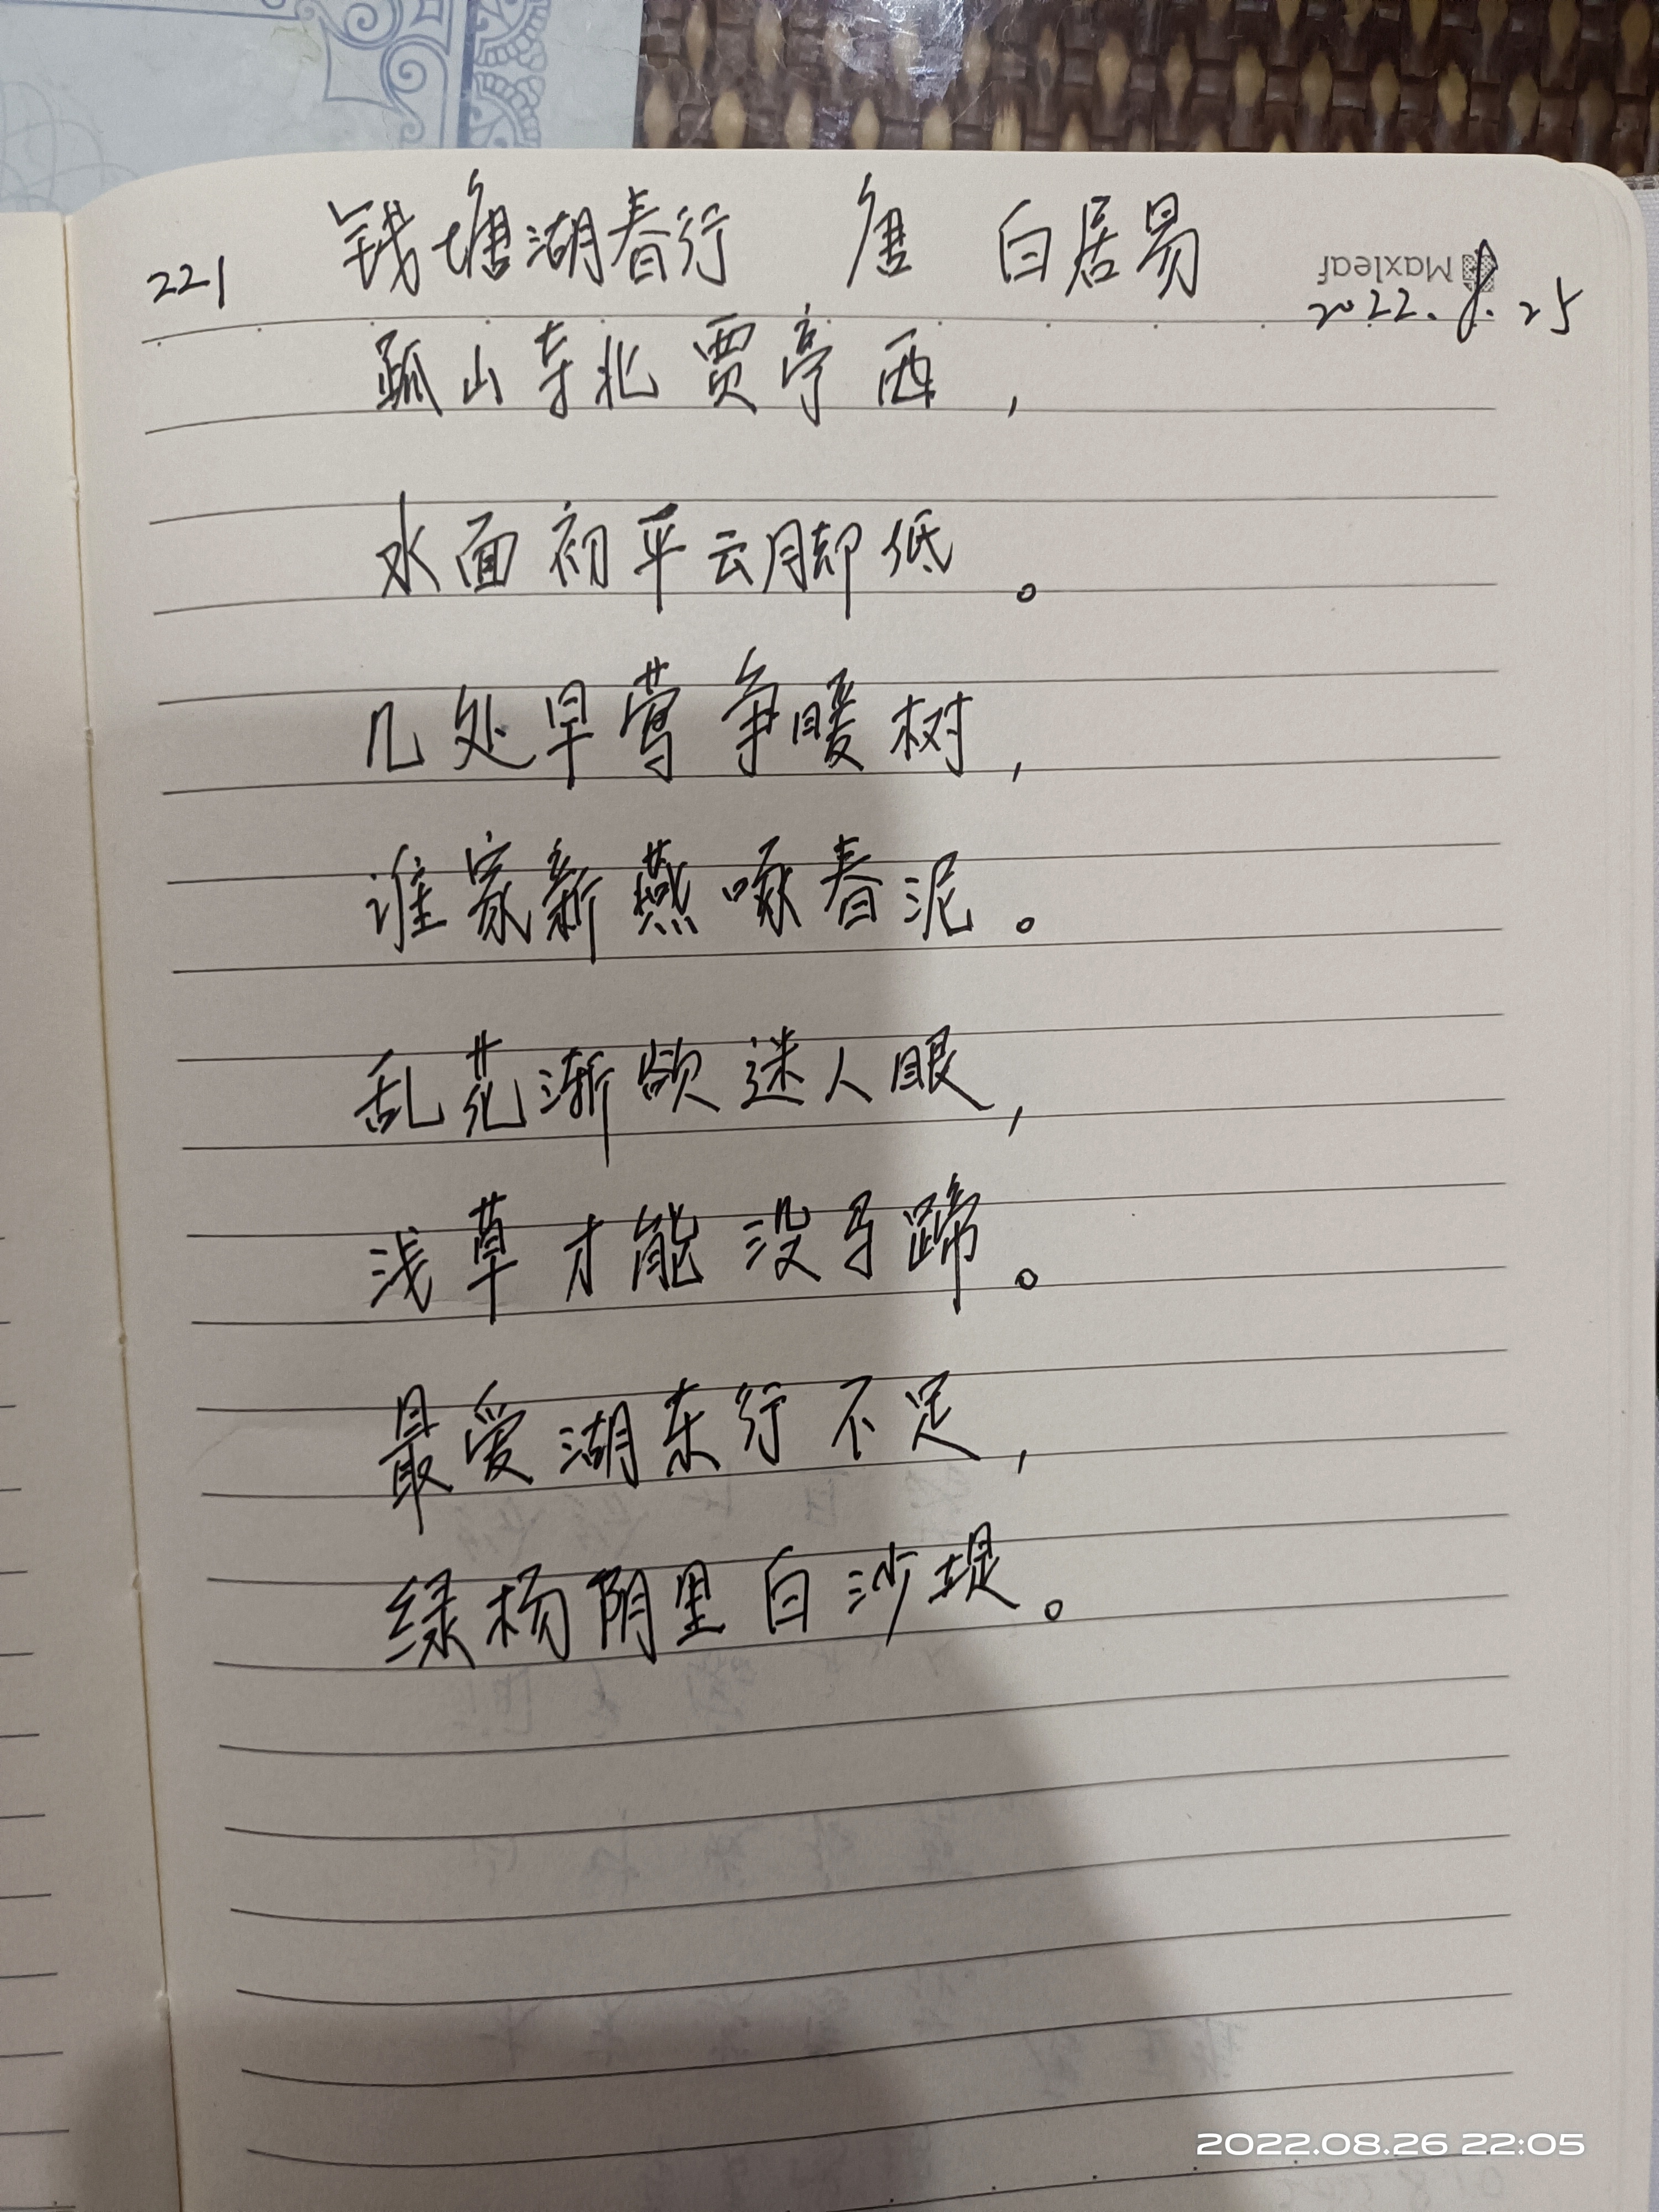 221 钱塘湖春行 唐 白居易
Maxleaf
2022.8.25
孤山寺北贾亭西，
水面初平云脚低。
几处早莺争暖树，
谁家新燕啄春泥。
乱花渐欲迷人眼，
浅草才能没马蹄。
最爱湖东行不足，
绿杨阴里白沙堤。
2022.08.26 22:05